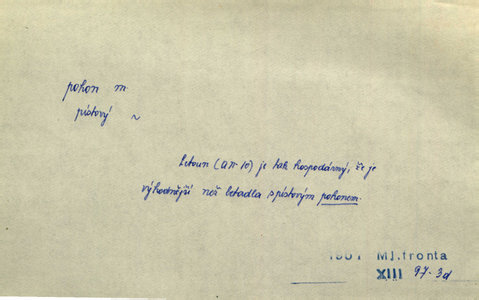 pohon m.
pístový ~
Letoun (AN-10) je tak hospodárný, že je
výhodnější než letadla s pístovým pohonem.
Ml.fronta
XIII 97-3d